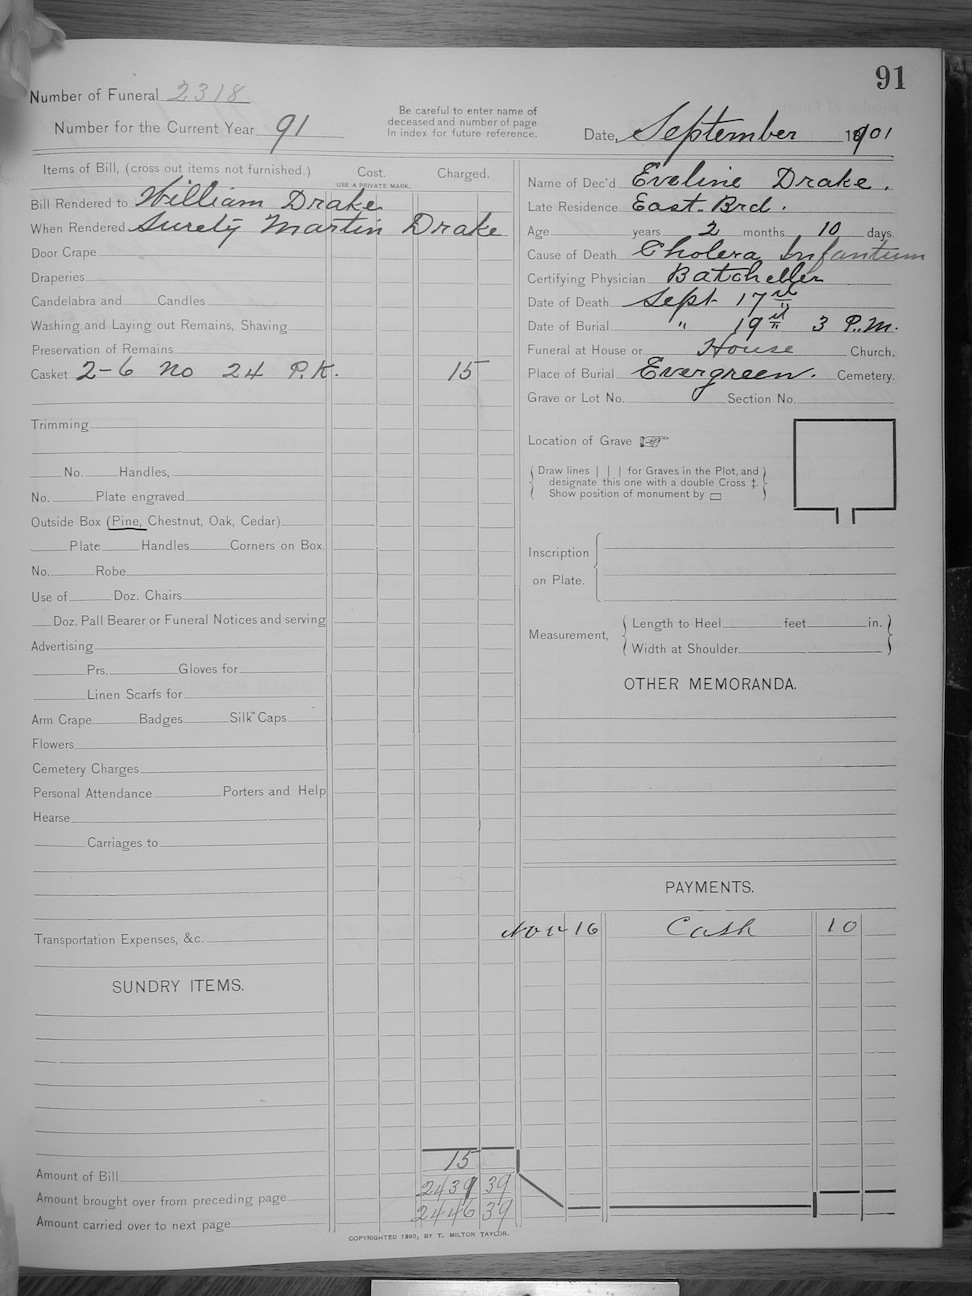 91
Number of Funeral 2318
Number for the Current Year 91
Be careful to enter name of
deceased and number of page
In index for future reference.
Date, September 1901
Items of Bill, (cross out items not furnished.) Cost. Charged.
USE A PRIVATE MARK.
Bill Rendered to William Drake
When Rendered Surety Martin Drake
Door Crape
Draperies
Candelabra and Candles
Washing and Laying out Remains, Shaving
Preservation of Remains
Casket 2-6 No 24 P.K. 15
Trimming
No. Handles,
No. Plate engraved
Outside Box (Pine, Chestnut, Oak, Cedar)
Plate Handles Corners on Box.
No. Robe
Use of Doz. Chairs
Doz. Pall Bearer or Funeral Notices and serving
Advertising
Prs. Gloves for
Linen Scarfs for
Arm Crape Badges Silk Caps
Flowers
Cemetery Charges
Personal Attendance Porters and Help
Hearse
Carriages to
Transportation Expenses, &c.
SUNDRY ITEMS.
Amount of Bill 15
Amount brought over from preceding page 2431 39
Amount carried over to next page 2446 39
COPYRIGHTED 1890, BY T. MILTON TAYLOR.
Name of Dec'd Eveline Drake.
Late Residence East. Brd.
Age years 2 months 10 days.
Cause of Death Cholera Infantum
Certifying Physician Batcheller
Date of Death Sept 17
Date of Burial " 19 3 P.M.
Funeral at House or House Church.
Place of Burial Evergreen. Cemetery.
Grave or Lot No. Section No.
Location of Grave ☞
Draw lines | | | for Graves in the Plot, and
designate this one with a double Cross ‡.
Show position of monument by ▭
Inscription
on Plate.
Measurement, Length to Heel feet in.
Width at Shoulder
OTHER MEMORANDA.
PAYMENTS.
Nov 16 Cash 10